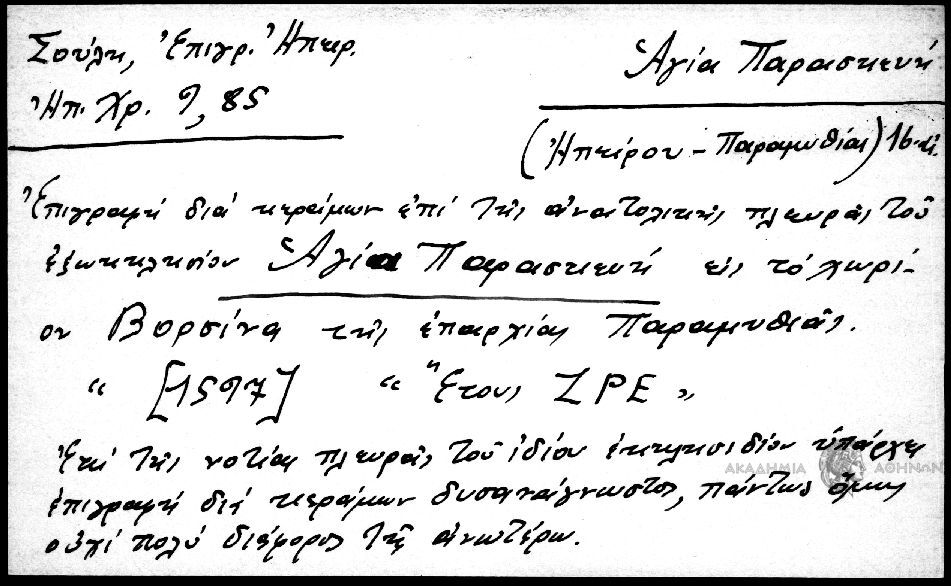 Σούλη, Ἐπιγρ. Ἠπειρ.
Ἠπ. Χρ. 9, 85
Ἁγία Παρασκευή
(Ἠπείρου - Παραμυθίας) 16. αἰ.
Ἐπιγραφή διά κεράμων ἐπί τῆς ἀνατολικῆς πλευρᾶς τοῦ
ἐξωκκλησίου Ἁγία Παρασκευή εἰς τό χωρί-
ον Βορσίνα τῆς ἐπαρχίας Παραμυθιᾶς.
“ [1597] “ Ἔτους ΖΡΕ „
Ἐπί τῆς νοτίας πλευρᾶς τοῦ ἰδίου ἐκκλησιδίου ὑπάρχει
ἐπιγραφή διά κεράμων δυσανάγνωστος, πάντως ὅμως
οὐχί πολύ διάφορος τῆς ἀνωτέρω.
ΑΚΑΔΗΜΙΑ ΑΘΗΝΩΝ